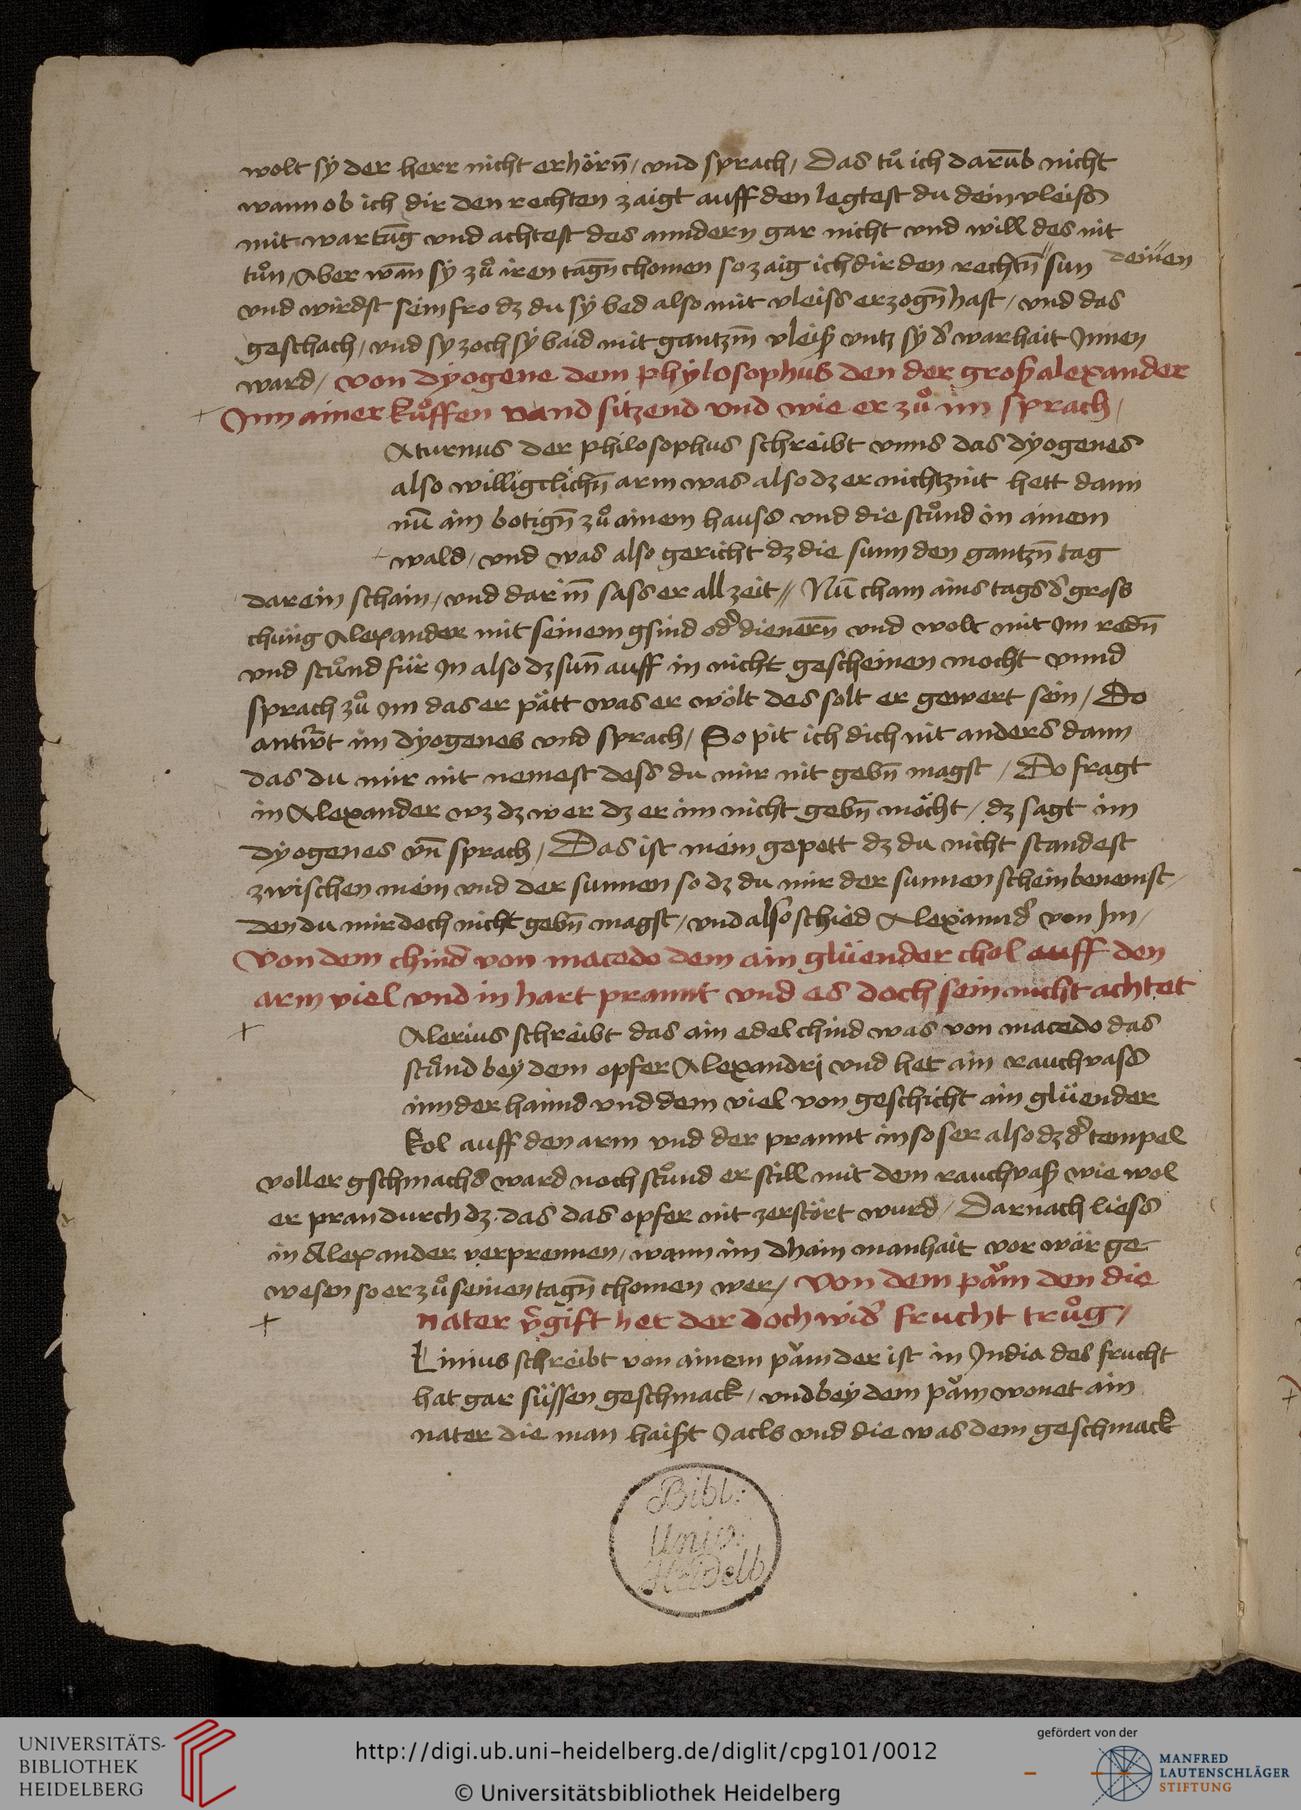 wolt sy der herr nicht erhörn̄ / vnd sprach / Das tů ich darūb nicht
wann ob ich dir den rechten zaigt auff den legtest du dein vleiss
mit wartūg vnd achtest des anndern gar nicht vnd will des nit
tůn / Aber wān sy zů iren tagn̄ chomen so zaig ich dir den rechtn̄ " sun " deinen
vnd wirdst sein fro dz du sy bed also mit vleiss erzogn̄ hast / vnd das
geschach / vnd sy zoch sy baid mit gantzm̄ vleiß vntz sy d' warhait Innen
ward / von dyogene dem phylosophus den der groß alexander
Inn ainer kůffen vand sitzend vnd wie er zů im sprach /
Aturnus der philosophus schreibt vnns das dyogenes
also willigtlichn̄ arm was also dz er nichtz nit hett dann
nū ain botign̄ zů ainem hauss vnd die stůnd in ainem
wald / vnd was also gericht dz die sunn den gantzn̄ tag
darein schain / vnd darīn sass er all zeit // Nū cham ains tags d' gross
chünig Alexander mit seinem gsind od' dienern̄ vnd wolt mit Im redn̄
vnd stůnd für In also dz sun̄ auff in nicht gescheinen mocht vnnd
sprach zů im das er pätt was er wölt des solt er gewert sein / Do
antw't im dyogenes vnd sprach / So pit ich dich nit anders dann
das du mir nit nemest dess du mir nit gebn̄ magst / Do fragt
in Alexander wz dz wer dz er im nicht gebn̄ möcht / dz sagt im
dyogenes vn̄ sprach / Das ist mein gepett dz du nicht standest
zwischen mein vnd der sunnen so dz du mir der sunnen schein benemst /
den du mir doch nicht gebn̄ magst / vnd also schied Alexannd' von Im /
Von dem chind von macedo dem ain glüender chol auff den
arm viel vnd in hart prannt vnd es doch sein nicht achtet
Alerius schreibt das ain edel chind was von macedo das
stůnd bey dem opfer Alexandri vnd het ain rauchvass
inn der hannd vnd dem viel von geschicht ain glüender
kol auff den arm vnd der prannt in so ser also dz d' tempel
voller gschmachs ward noch stůnd er still mit dem rauchvaß wie wol
er pran durch dz das das opfer nit zerstört wurd / Darnach liess
in Alexander verprennen / wann im dhain manhait vor wär ge
wesen so er zů seinen tagn̄ chomen wer / Von dem pǎm den die
nater v'gift het der doch wid' frucht trůg /
Linius schreibt von ainem pǎm der ist in India des frucht
hat gar süssen geschmack / vnd bey dem pǎm wonet ain
nater die man haißt Jacls vnd die was dem geschmack
Bibl:
Univ:
Heidelb
UNIVERSITÄTS-
BIBLIOTHEK
HEIDELBERG
http://digi.ub.uni-heidelberg.de/diglit/cpg101/0012
© Universitätsbibliothek Heidelberg
gefördert von der
MANFRED
LAUTENSCHLÄGER
STIFTUNG